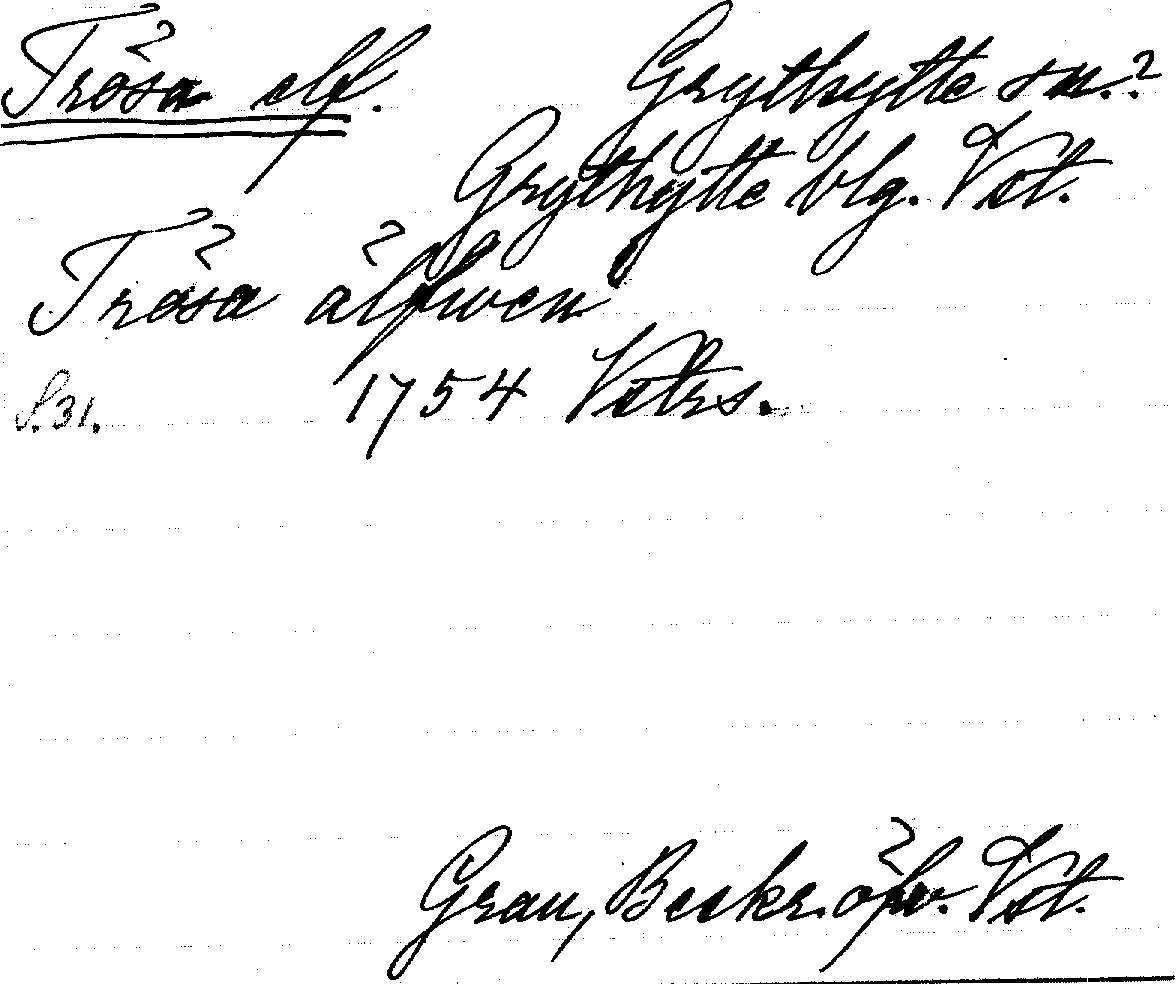 Trösa elf. Grythytte sn.?
Grythytte blg. Vst.
Trösa älfwen
S. 31. 1754 Vstrs.
Grau, Beskr. öfw. Vst.